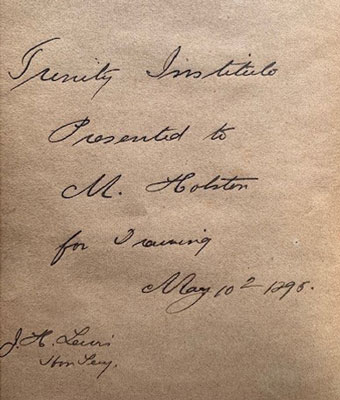 Trinity Institute
Presented to
M. Holsten
for Training
May 10th 1898.
J. H. Lewis
Hon Secy.